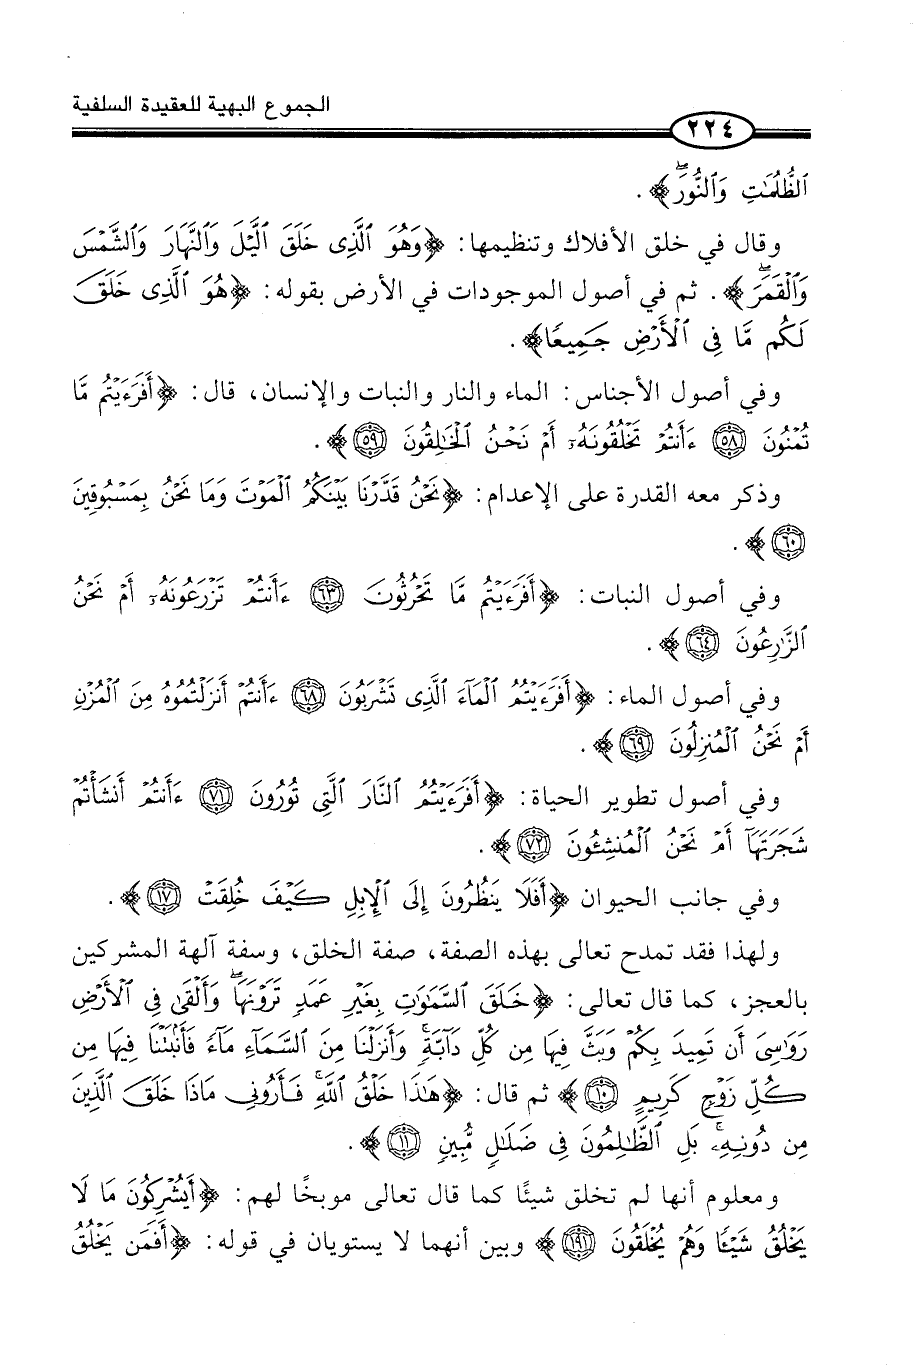 الجموع البهية للعقيدة السلفية
٢٢٤
ٱلظُّلُمَٰتِ وَٱلنُّورَۖ﴾ .
وقال في خلق الأفلاك وتنظيمها: ﴿وَهُوَ ٱلَّذِى خَلَقَ ٱلَّيْلَ وَٱلنَّهَارَ وَٱلشَّمْسَ
وَٱلْقَمَرَۖ﴾ . ثم في أصول الموجودات في الأرض بقوله: ﴿هُوَ ٱلَّذِى خَلَقَ
لَكُم مَّا فِى ٱلْأَرْضِ جَمِيعًا﴾ .
وفي أصول الأجناس: الماء والنار والنبات والإنسان، قال: ﴿أَفَرَءَيْتُم مَّا
تُمْنُونَ ٥٨ ءَأَنتُمْ تَخْلُقُونَهُۥٓ أَمْ نَحْنُ ٱلْخَٰلِقُونَ ٥٩﴾ .
وذكر معه القدرة على الإعدام: ﴿نَحْنُ قَدَّرْنَا بَيْنَكُمُ ٱلْمَوْتَ وَمَا نَحْنُ بِمَسْبُوقِينَ
٦٠﴾ .
وفي أصول النبات: ﴿أَفَرَءَيْتُم مَّا تَحْرُثُونَ ٦٣ ءَأَنتُمْ تَزْرَعُونَهُۥٓ أَمْ نَحْنُ
ٱلزَّٰرِعُونَ ٦٤﴾ .
وفي أصول الماء: ﴿أَفَرَءَيْتُمُ ٱلْمَآءَ ٱلَّذِى تَشْرَبُونَ ٦٨ ءَأَنتُمْ أَنزَلْتُمُوهُ مِنَ ٱلْمُزْنِ
أَمْ نَحْنُ ٱلْمُنزِلُونَ ٦٩﴾ .
وفي أصول تطوير الحياة: ﴿أَفَرَءَيْتُمُ ٱلنَّارَ ٱلَّتِى تُورُونَ ٧١ ءَأَنتُمْ أَنشَأْتُمْ
شَجَرَتَهَآ أَمْ نَحْنُ ٱلْمُنشِـُٔونَ ٧٢﴾ .
وفي جانب الحيوان ﴿أَفَلَا يَنظُرُونَ إِلَى ٱلْإِبِلِ كَيْفَ خُلِقَتْ ١٧﴾ .
ولهذا فقد تمدح تعالى بهذه الصفة، صفة الخلق، وسفة آلهة المشركين
بالعجز، كما قال تعالى: ﴿خَلَقَ ٱلسَّمَٰوَٰتِ بِغَيْرِ عَمَدٍ تَرَوْنَهَاۖ وَأَلْقَىٰ فِى ٱلْأَرْضِ
رَوَٰسِىَ أَن تَمِيدَ بِكُمْ وَبَثَّ فِيهَا مِن كُلِّ دَآبَّةٍۚ وَأَنزَلْنَا مِنَ ٱلسَّمَآءِ مَآءً فَأَنۢبَتْنَا فِيهَا مِن
كُلِّ زَوْجٍ كَرِيمٍ ١٠﴾ ثم قال: ﴿هَٰذَا خَلْقُ ٱللَّهِ فَأَرُونِى مَاذَا خَلَقَ ٱلَّذِينَ
مِن دُونِهِۦۚ بَلِ ٱلظَّٰلِمُونَ فِى ضَلَٰلٍ مُّبِينٍ ١١﴾ .
ومعلوم أنها لم تخلق شيئًا كما قال تعالى موبخًا لهم: ﴿أَيُشْرِكُونَ مَا لَا
يَخْلُقُ شَيْـًٔا وَهُمْ يُخْلَقُونَ ١٩١﴾ وبين أنهما لا يستويان في قوله: ﴿أَفَمَن يَخْلُقُ